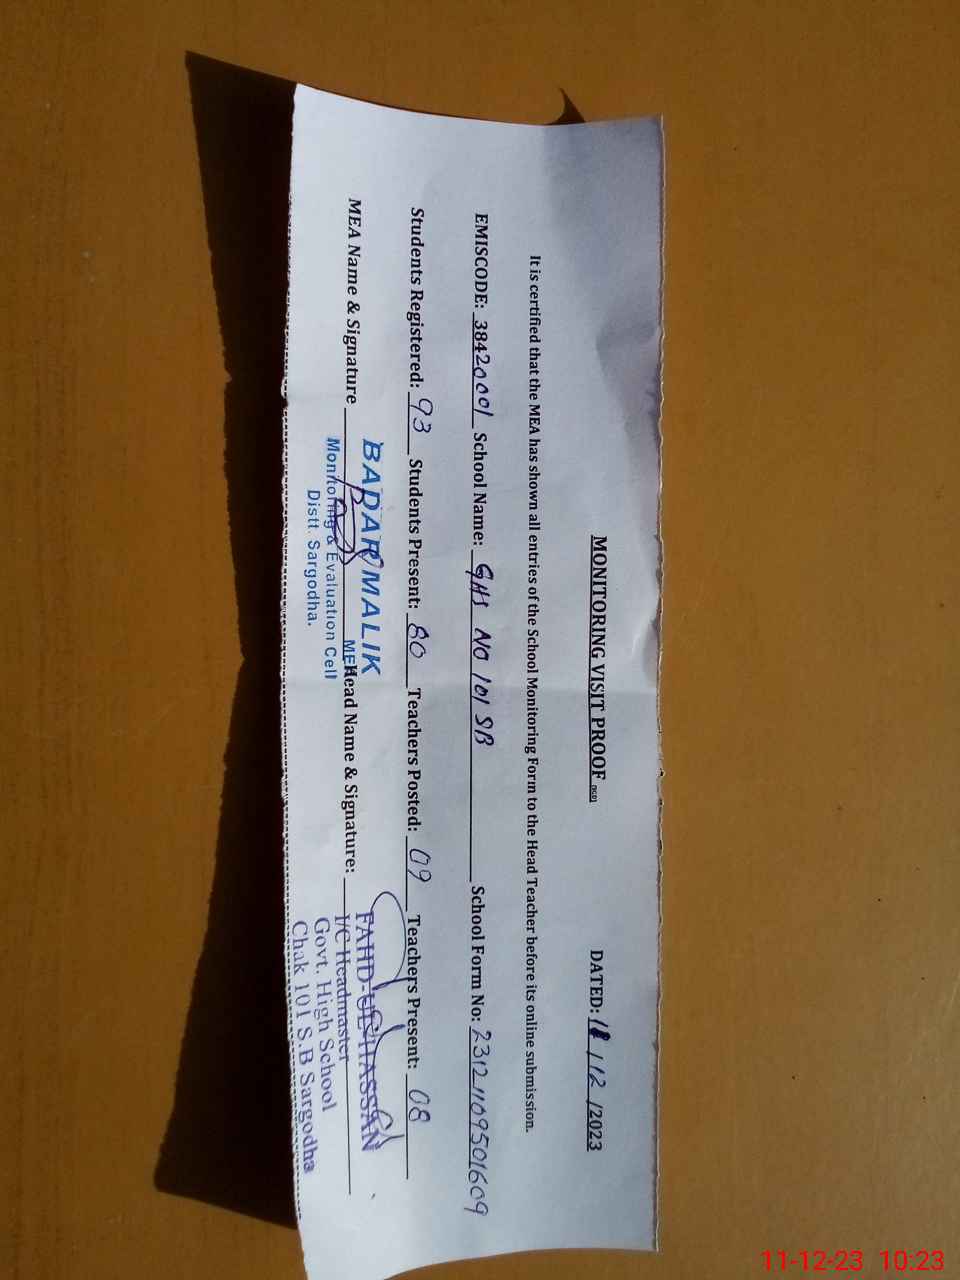 MONITORING VISIT PROOF DATED: 11/12/2023
It is certified that the MEA has shown all entries of the School Monitoring Form to the Head Teacher before its online submission.
EMISCODE: 38420001 School Name: GHS NO 101 SB School Form No: 231211095501609
Students Registered: 93 Students Present: 80 Teachers Posted: 09 Teachers Present: 08
MEA Name & Signature Head Name & Signature:
BADAR MALIK
MEA
Monitoring & Evaluation Cell
Distt. Sargodha.
FAHD-UL-HASSAN
I/C Headmaster
Govt. High School
Chak 101 S.B Sargodha
11-12-23 10:23